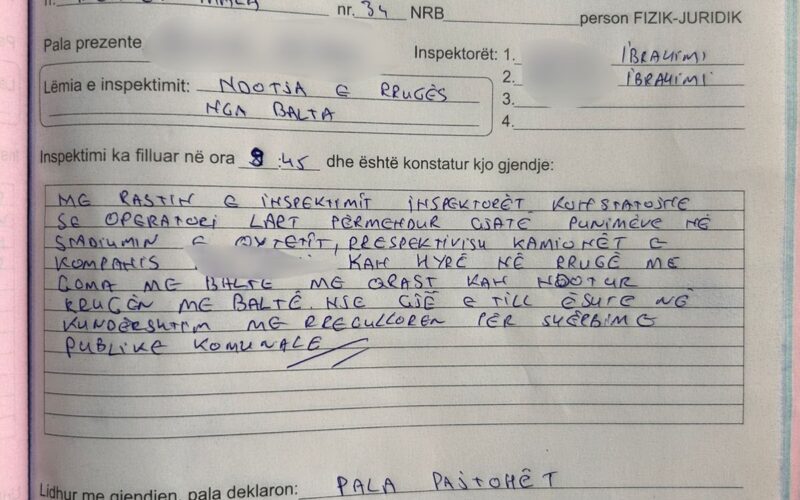 nr. 34 NRB person FIZIK-JURIDIK
Pala prezente Inspektorët: 1. IBRAHIMI
2. IBRAHIMI
3.
4.
Lëmia e inspektimit: NDOTJA E RRUGËS
NGA BALTA
Inspektimi ka filluar në ora 8:45 dhe është konstatur kjo gjendje:
ME RASTIN E INSPEKTIMIT INSPEKTORËT KONSTATOJNE
SE OPERATORI LART PËRMENDUR GJATË PUNIMEVE NË
STADIUMIN E QYTETIT, PRESPEKTIVISH KAMIONËT E
KOMPANIS KAN HYRË NË RRUGË ME
GOMA ME BALTE ME QRAST KAN NDOTUR
RRUGËN ME BALTË. NJE GJË E TILL ËSHTE NË
KUNDËRSHTIM ME RREGULLOREN PËR SHËRBIME
PUBLIKE KOMUNALE
Lidhur me gjendjen, pala deklaron: PALA PAJTOHËT